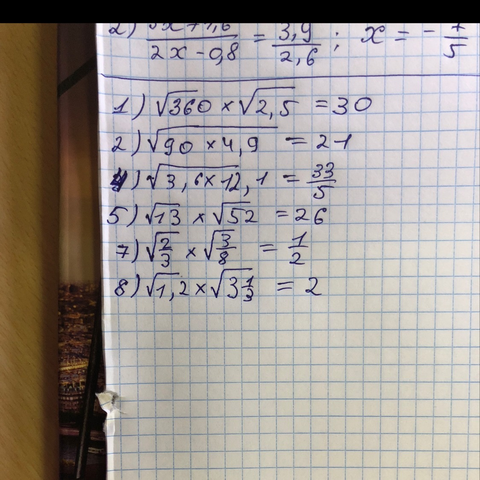 2) (5x+1,6)/(2x-0,8) = 3,9/2,6 ; x = -7/5
1) √360 × √2,5 = 30
2) √90 × 4,9 = 21
4) √3,6 × 12,1 = 33/5
5) √13 × √52 = 26
7) √2/3 × √3/8 = 1/2
8) √1,2 × √3 1/3 = 2